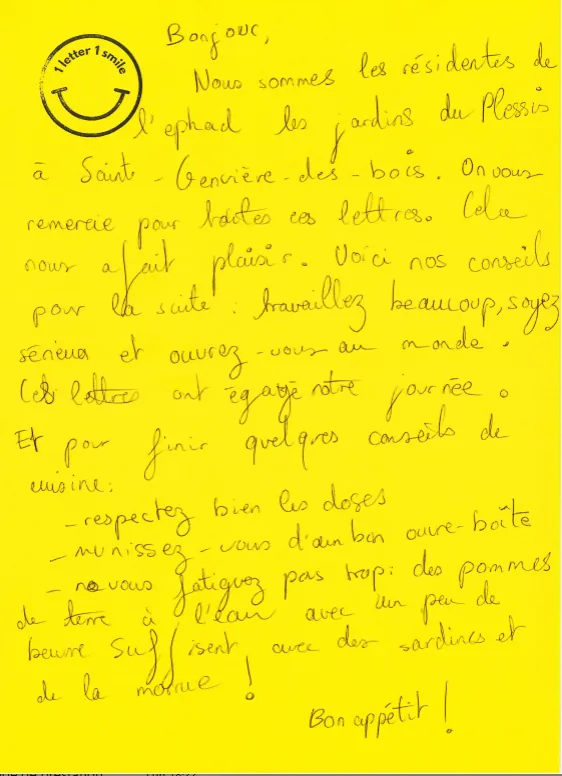 1 letter 1 smile
Bonjour,
Nous sommes les résidentes de
l'ephad les jardins du Plessis
à Sainte-Genvière-des-bois. On vous
remercie pour toutes ces lettres. Cela
nous a fait plaisir. Voici nos conseils
pour la suite : travaillez beaucoup, soyez
sérieux et ouvrez-vous au monde.
Ces lettres ont égayé notre journée.
Et pour finir quelques conseils de
cuisine:
- respectez bien les doses
- munissez-vous d'un bon ouvre-boîte
- ne vous fatiguez pas trop: des pommes
de terre à l'eau avec un peu de
beurre suffisent avec des sardines et
de la morue !
Bon appétit !